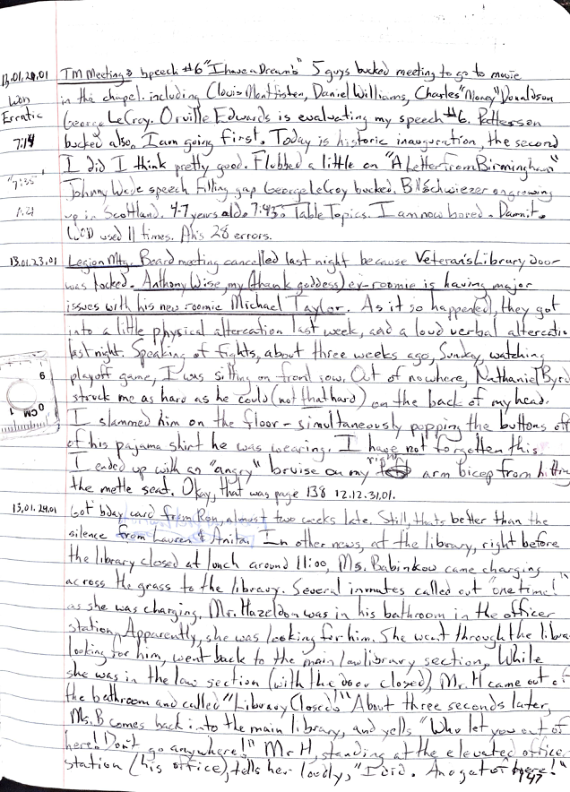 13.01.21.01 TM Meeting: Speech #6 "I have a Dream" 5 guys bucked meeting to go to movie
Won in the chapel. including Clovis Montfisten, Daniel Williams, Charles "Money" Donaldson
Erratic George LeCroy. Orville Edwards is evaluating my speech #6. Patterson
7:14 bucked also. I am going first. Today is historic inauguration, the second
I did I think pretty good. Flubbed a little on "A Letter From Birmingham"
"7:35" Johnny Wade speech filling gap George LeCroy bucked. Bill Schwiezer on growing
7:21 up in Scotland. 4-7 years old. 7:43. Table Topics. I am now bored. Damnit.
WOD used 11 times. Ahs 28 errors.
13.01.23.01 Legion Mtg. Board meeting cancelled last night because Veteran's Library door
was locked. Anthony Wise, my (thank goddess) ex-roomie is having major
issues with his new roomie Michael Taylor. As it so happened, they got
into a little physical altercation last week, and a loud verbal altercation
last night. Speaking of fights, about three weeks ago, Sunday, watching
playoff game, I was sitting on front row. Out of nowhere, Nathaniel Byrd
struck me as hard as he could (not that hard) on the back of my head.
I slammed him on the floor - simultaneously popping the buttons off
of his pajama shirt he was wearing. I have not forgotten this.
I ended up with an "angry" bruise on my right arm bicep from hitting
the metle seat. Okay, that was page 138 12.12.31.01.
13.01.24.01 Got bday card from Ron, almost two weeks late. Still, thats better than the
silence from Lauren & Anita. In other news, at the library, right before
the library closed at lunch around 11:00, Ms. Babinkow came charging
across the grass to the library. Several inmates called out "one time!"
as she was charging. Mr. Hazeldon was in his bathroom in the officer
station. Apparently, she was looking for him. She went through the library
looking for him, went back to the main / law library section. While
she was in the law section (with the door closed), Mr. H came out of
the bathroom and called "Library Closed!" About three seconds later,
Ms. B comes back into the main library, and yells "Who let you out of
here! Don't go anywhere!" Mr H, standing at the elevated officer
station (his office), tells her loudly, "I did. And get out of here!"
147